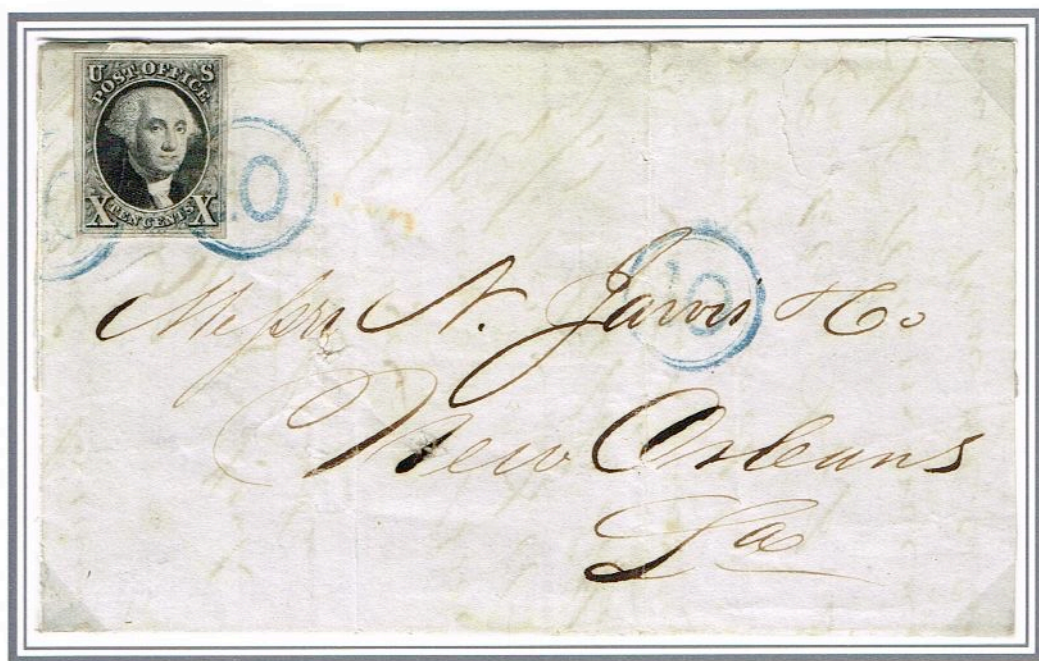 U S
POST OFFICE
X TEN CENTS X
10
10
Messrs N. Jarvis & Co
New Orleans
La